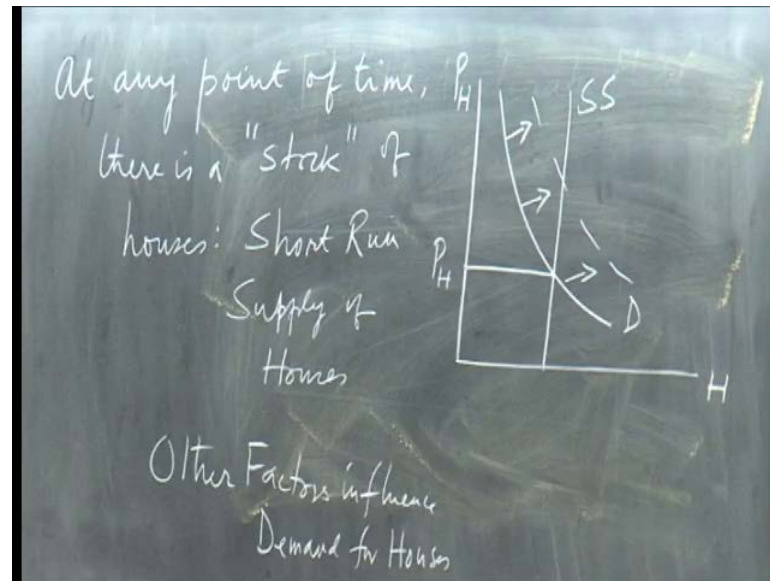 At any point of time,
there is a "stock" of
houses: Short Run
Supply of
Houses
P_H
SS
P_H
D
H
Other Factors influence
Demand for Houses